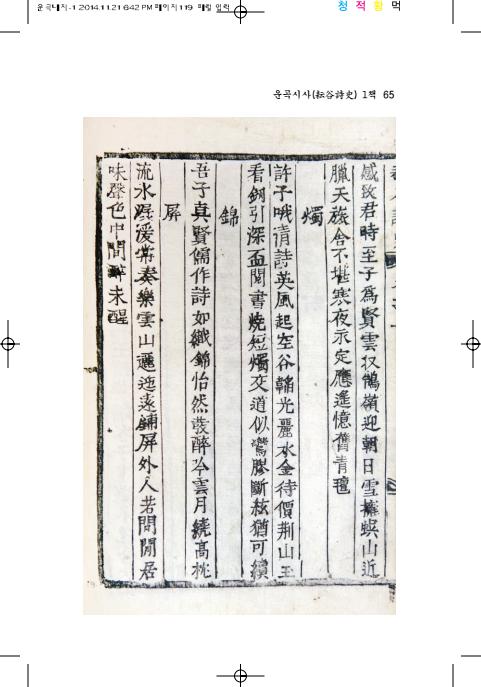 운곡대지-1 2014.11.21 6:42 PM 페이지119
청 적 황 먹
운곡시사(耘谷詩史) 1책 65
感致君時至子爲賢雲収鵠嶺迎朝日雪擁蜈山近
臘天族舍不堪寒夜示定應遙憶舊青氊
燭
許子哦清詩英風起空谷韜光麗水金待價荆山玉
看劒引深盃閱書燒短燭交道似鸞膠斷絃猶可續
錦
吾子真賢儒作詩如織錦怡然發醉吟雲月繞高枕
屏
流水潺湲常奏樂雲山邐迤遂鋪屏外人若問閒居
味聲色中間醉未醒